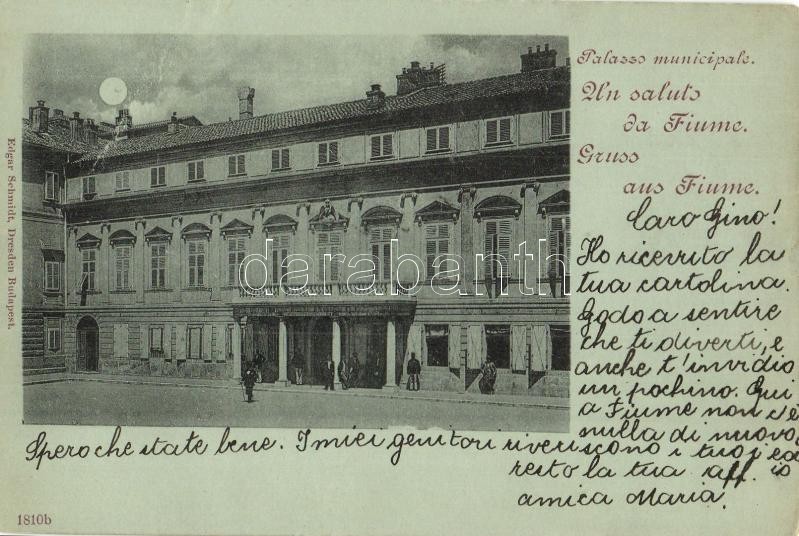 Palazzo municipale.
Un saluto
da Fiume.
Gruss
aus Fiume.
Caro Gino!
Ho ricevuto la
tua cartolina.
Godo a sentire
che ti diverti, e
anche t'invidio
un pochino. Qui
a Fiume non c'è
nulla di nuovo,
Spero che state bene. I miei genitori riveriscono i tuoi ed io
resto la tua aff.
amica Maria.
Edgar Schmidt, Dresden Budapest.
1810b
darabanth